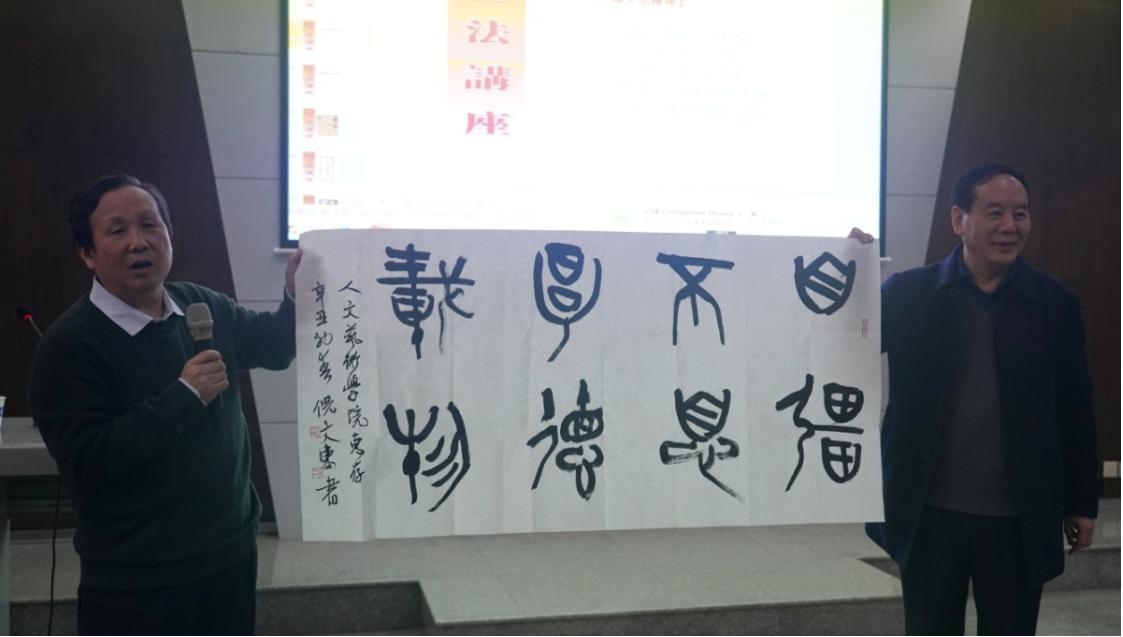 法講座
USB Composite Device
自彊
不息
厚德
載物
人文藝術學院惠存
辛丑初春倪文東書